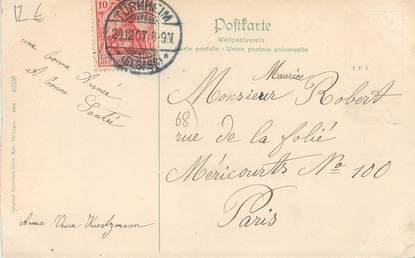 12 €
TÜRKHEIM
29.12.07. 8-9 V
(ELSASS)
10
Postkarte
Weltpostverein
Carte postale - Union postale universelle
une bonne Année
et bonne
Santée
Maurice
Monsieur Robert
68
rue de la folié
Méricourts No 100
Paris
Anna